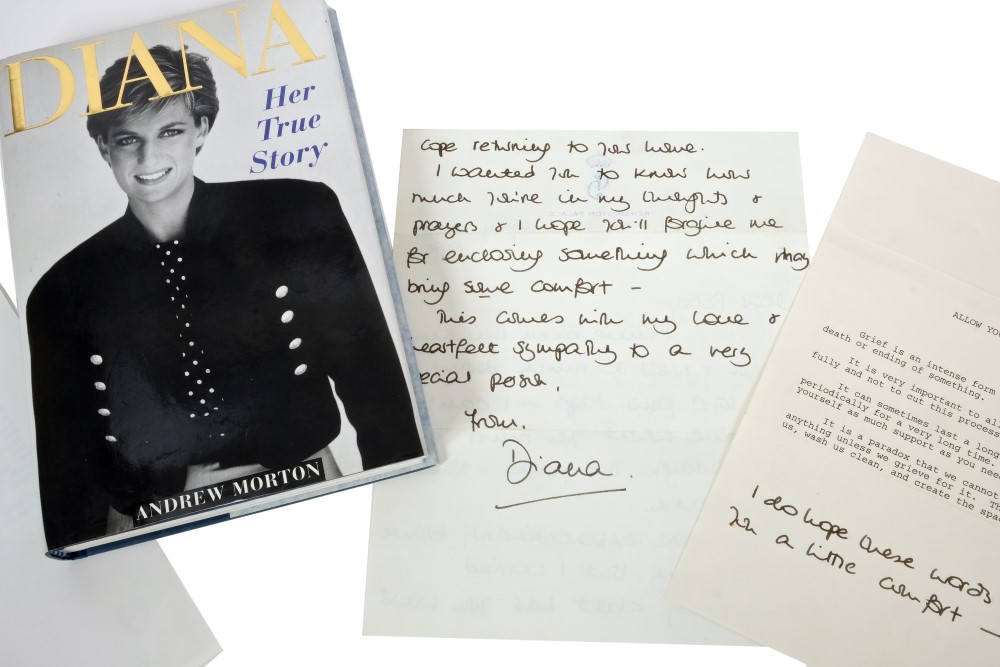 DIANA
Her
True
Story
ANDREW MORTON
cope returning to your home.
I wanted you to know how
much you're in my thoughts &
prayers & I hope you'll forgive me
for enclosing something which may
bring some comfort –
This comes with my love &
heartfelt sympathy to a very
ecial person.
from.
Diana.
KENSINGTON PALACE
ALLOW YOU
Grief is an intense form
death or ending of something.
It is very important to all
fully and not to cut this process
It can sometimes last a long
periodically for a very long time.
yourself as much support as you need
It is a paradox that we cannot
anything unless we grieve for it. Th
us, wash us clean, and create the spa
I do hope these words
you a little comfort –